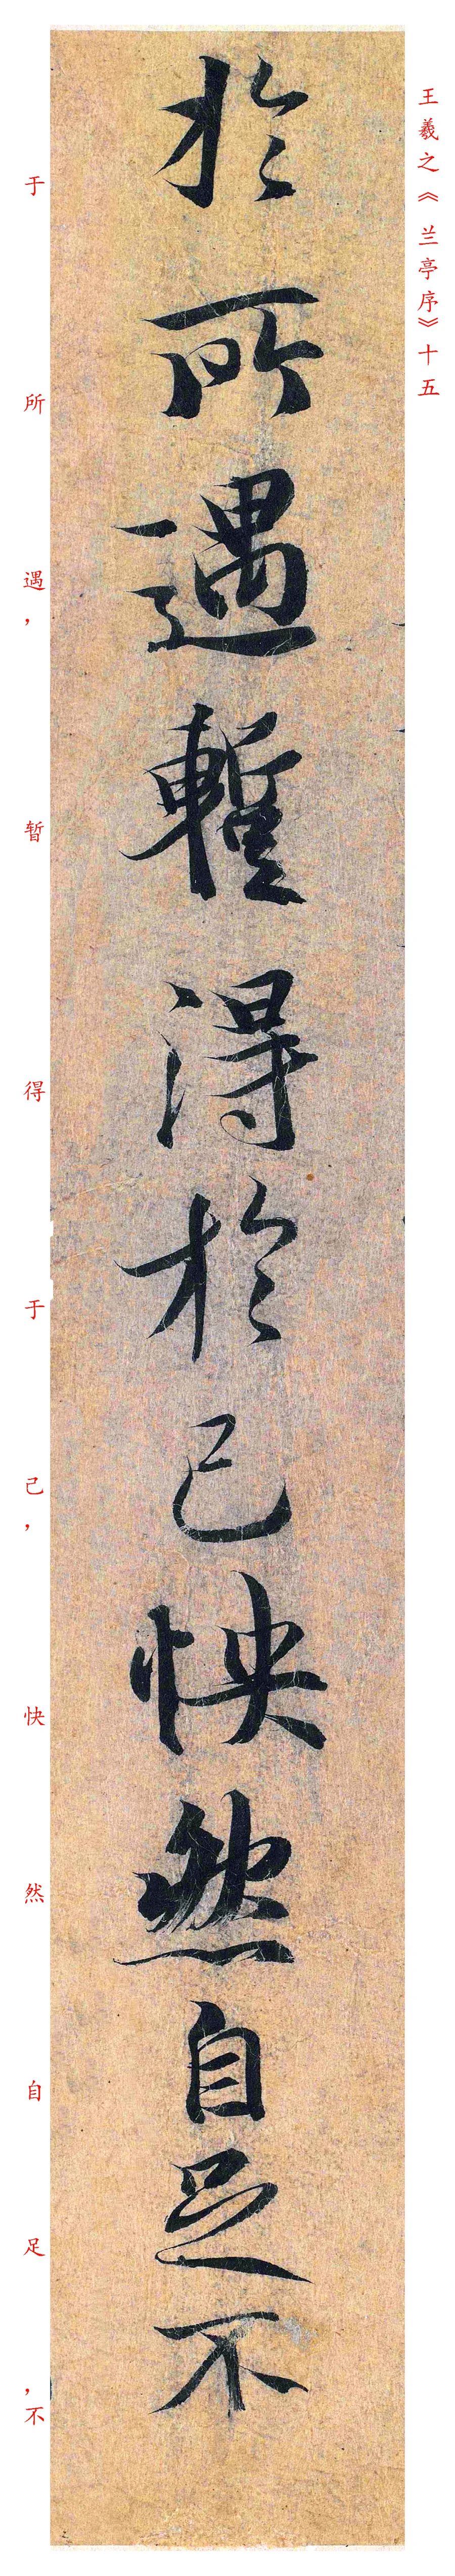 王羲之《兰亭序》十五
於所遇暫得於己怏然自足不
于所遇，暂得于己，快然自足，不